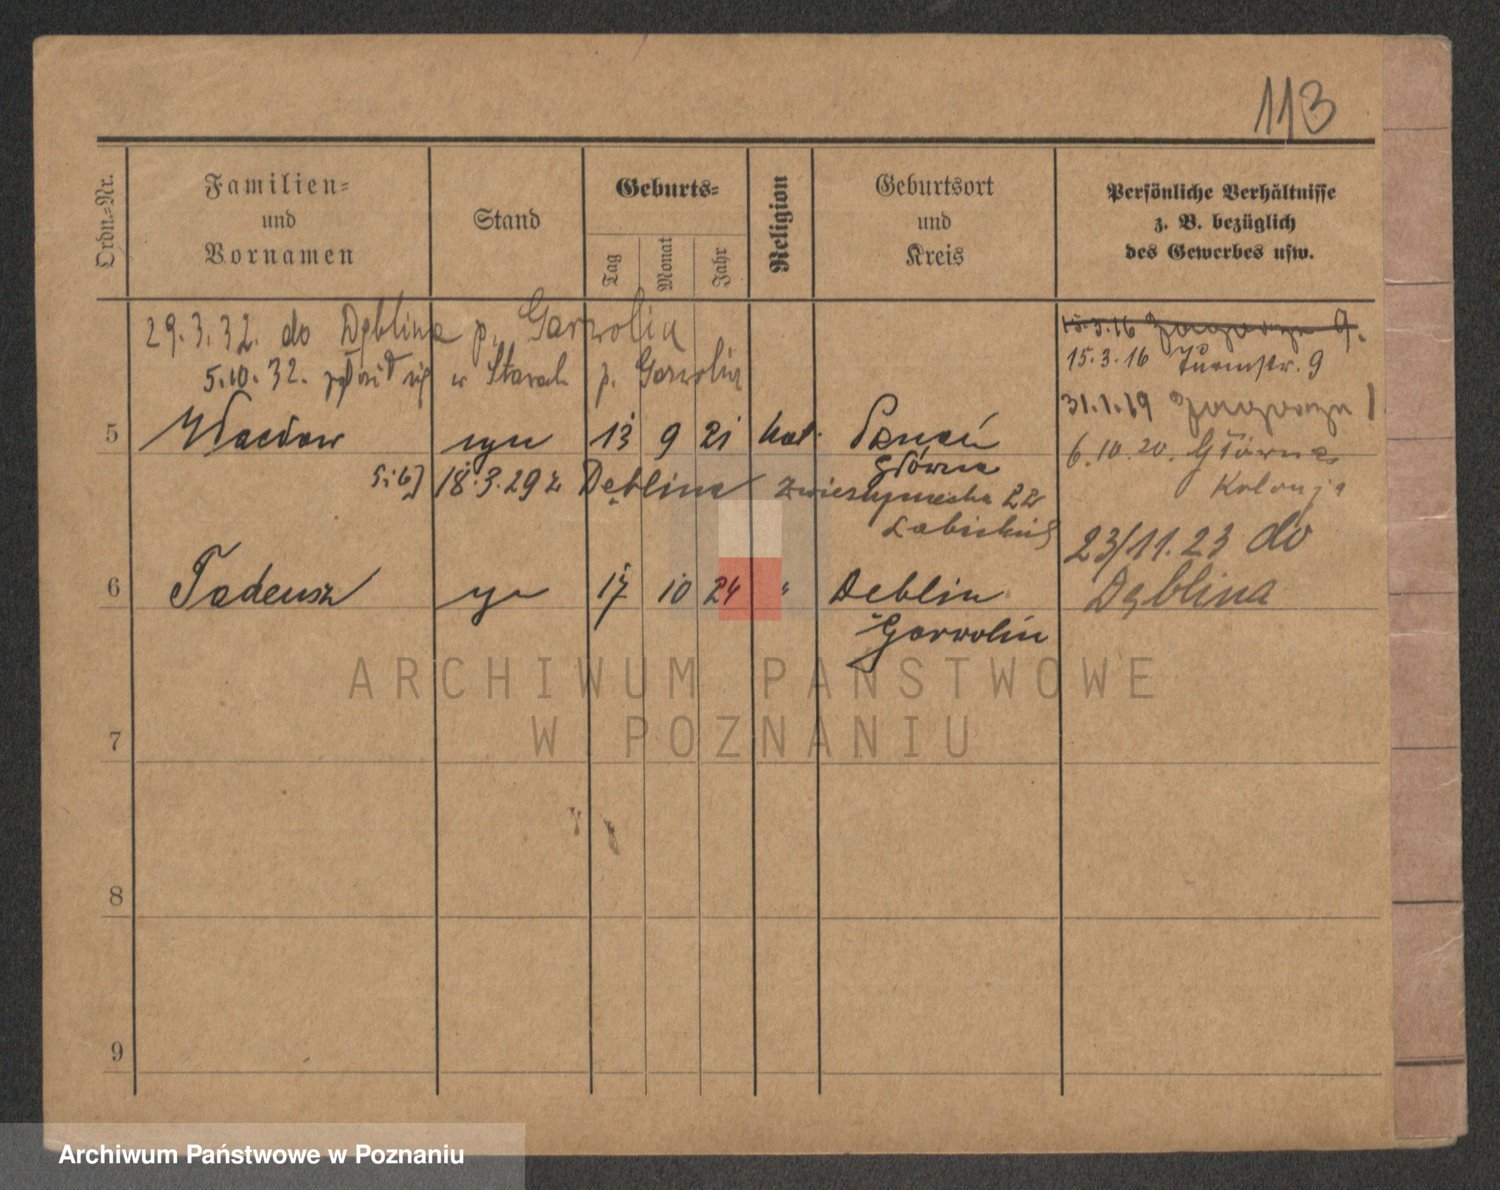 113
Ordn.-Nr.
Familien-
und
Vornamen
Stand
Geburts-
Tag
Monat
Jahr
Religion
Geburtsort
und
Kreis
Persönliche Verhältnisse
z. B. bezüglich
des Gewerbes usw.
29.3.32. do Dęblina p. Garwolin
5.10.32. się w Stawach p. Garwolin
15.3.16 9.
15.3.16 Turmstr. 9
31.1.19
5 Wacław syn 13 9 21 kat. Poznań
6.10.20. Główna
Kolonja
Główna
5 i 6] 18.3.29 z Dęblina Zwierzyniecka 22
23/11.23 do
Dęblina
6 Tadeusz syn 17 10 24 " Deblin
Garwolin
7
8
9
ARCHIWUM PAŃSTWOWE
W POZNANIU
Archiwum Państwowe w Poznaniu